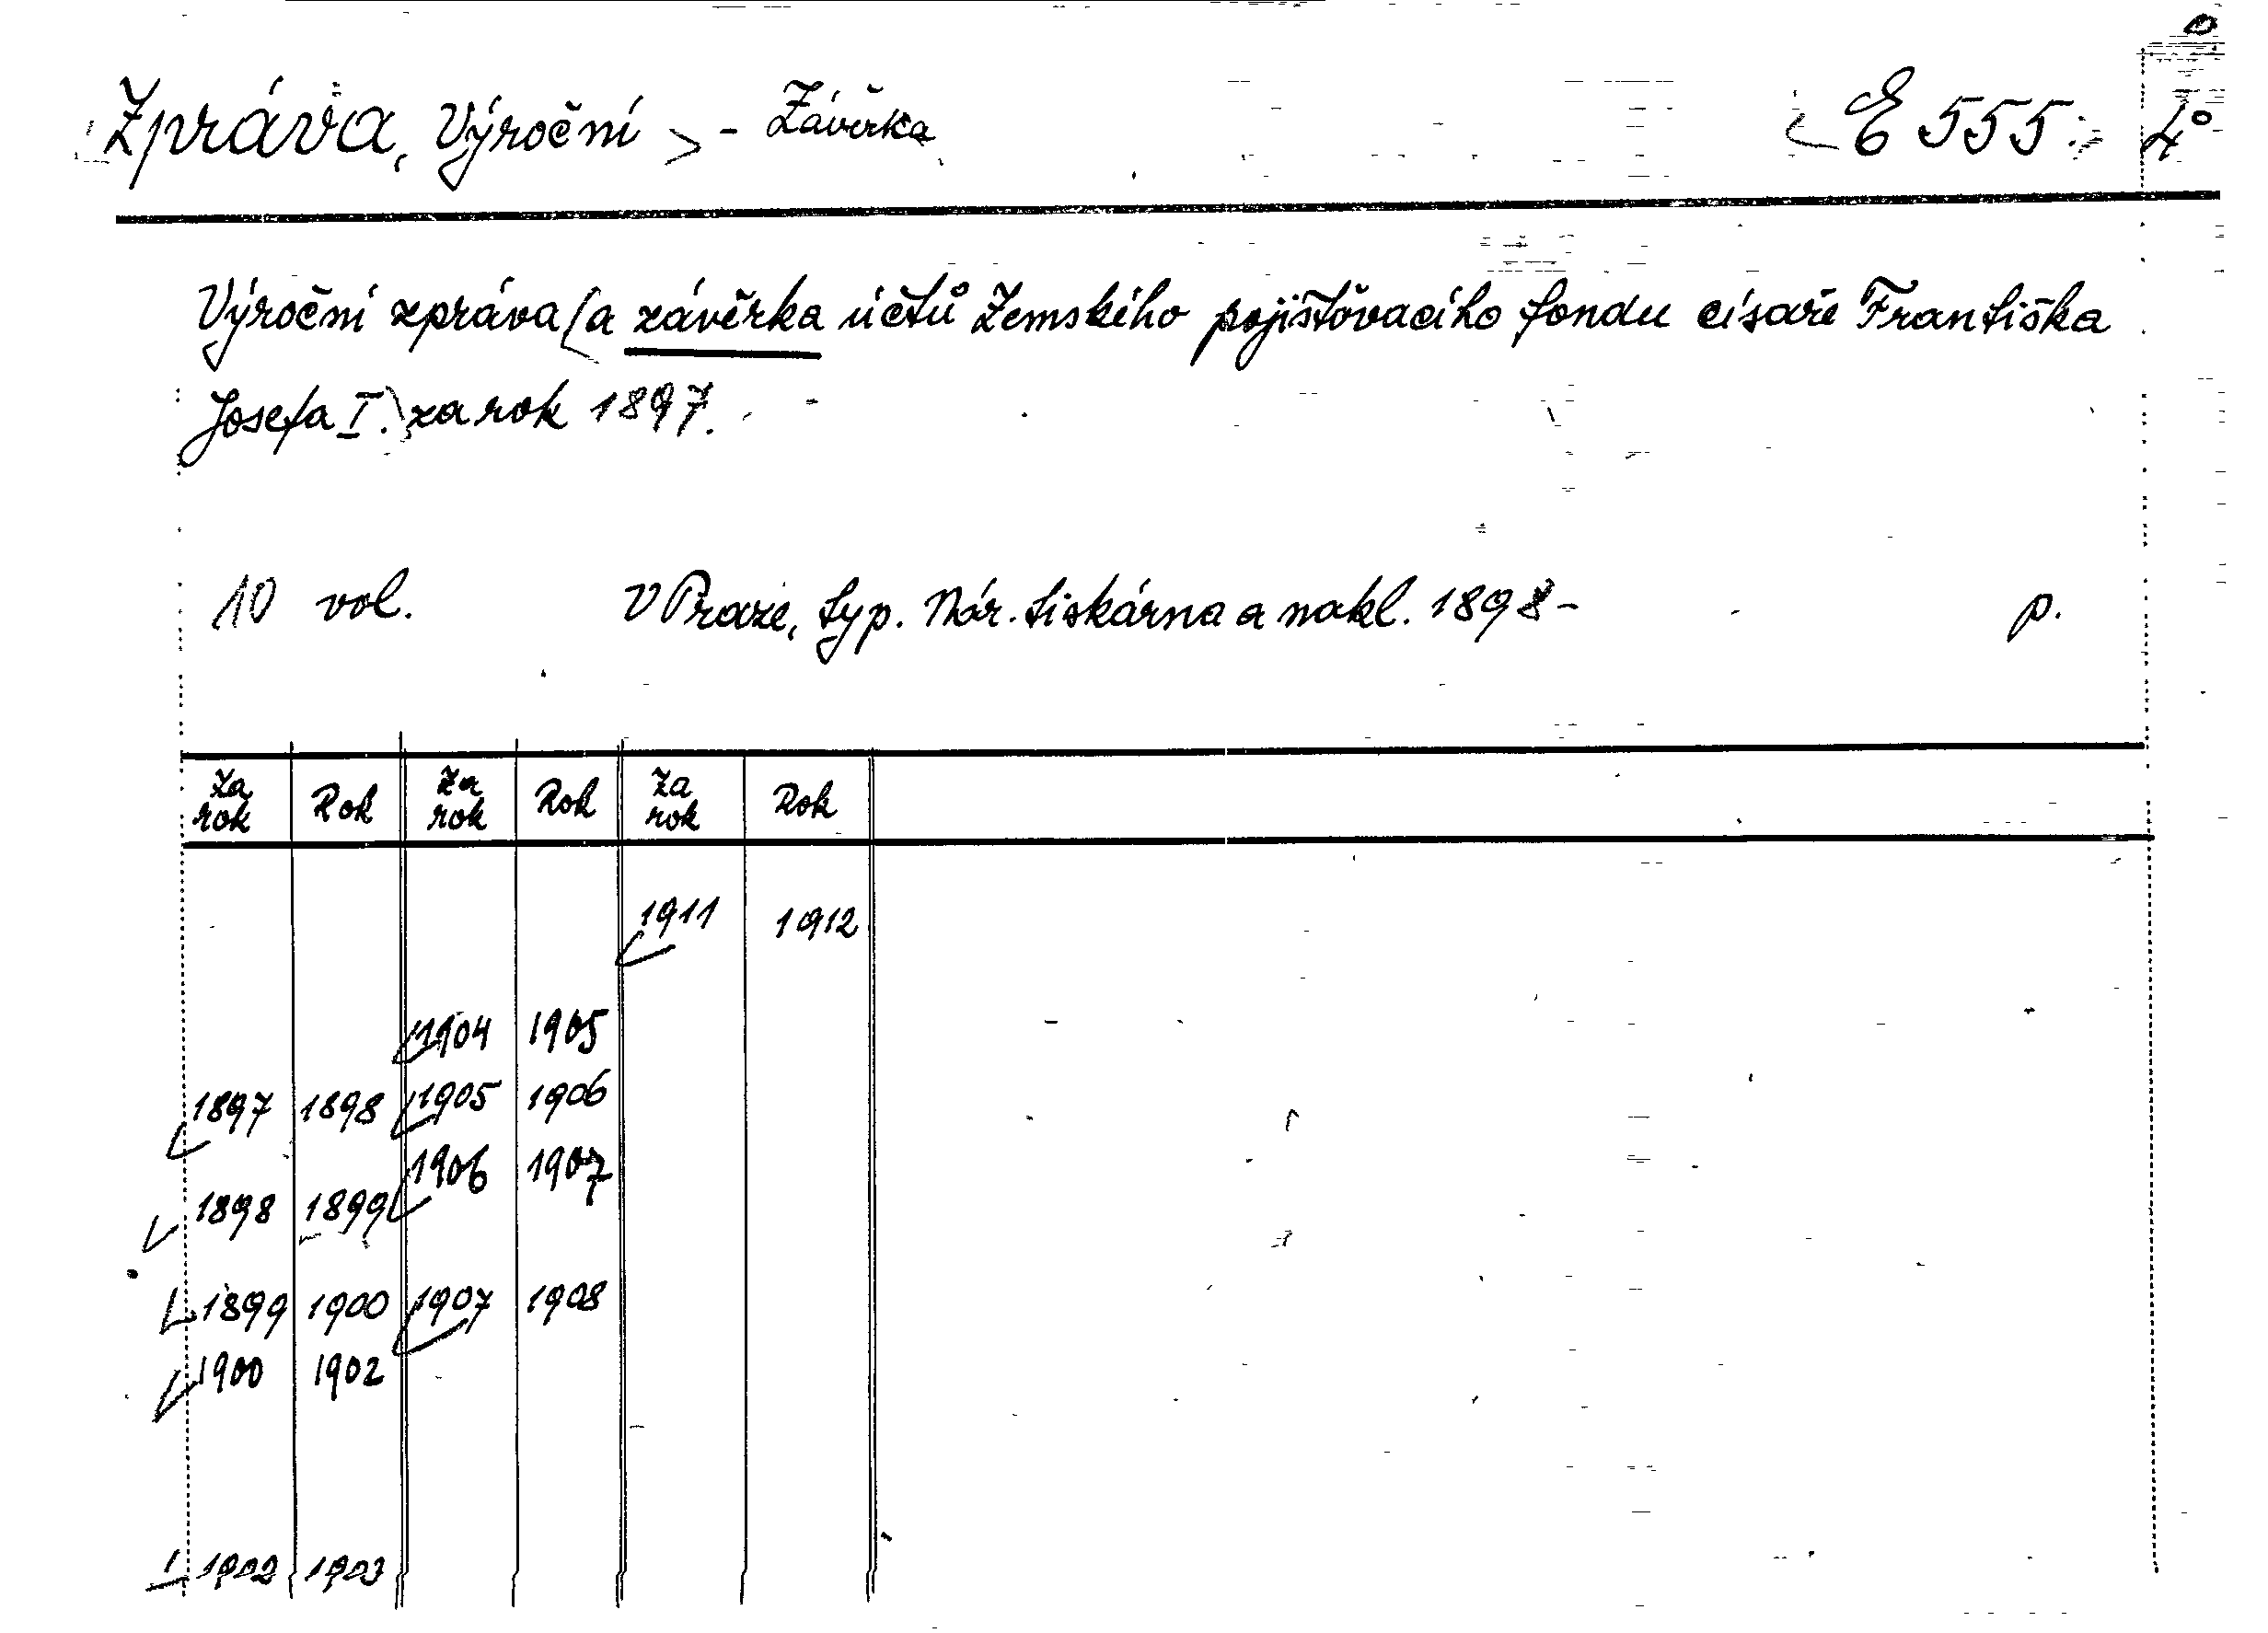 Zpráva, Výroční > - Závěrka E 555. 4°
Výroční zpráva (a závěrka účtů Zemského pojišťovacího fondu císaře Františka
Josefa I.) za rok 1897.
10 vol. V Praze, typ. Nár. tiskárna a nakl. 1898- p.
Za rok Rok Za rok Rok Za rok Rok
1911 1912
1904 1905
1897 1898 1905 1906
1906 1907
1898 1899
1899 1900 1907 1908
1900 1902
1902 1903